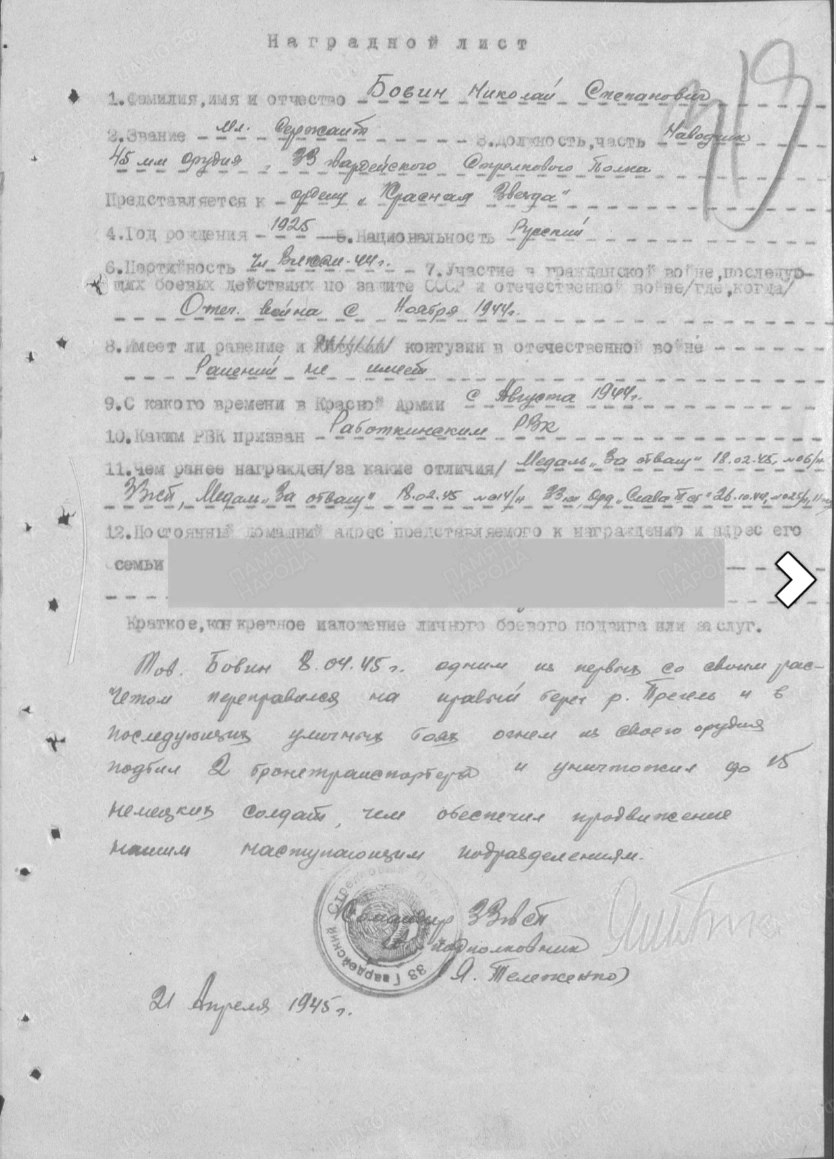 Наградной лист
1.Фамилия,имя и отчество Бовин Николай Степанович
2.Звание Мл. Сержант 3.Должность,часть Наводчик
45 мм орудия, 33 Гвардейского Стрелкового Полка
Представляется к ордену „Красная Звезда"
4.Год рождения 1925 5.Национальность Русский
6.Партийность чл ВЛКСМ-44г. 7.Участие в гражданской войне,последую-
щих боевых действиях по защите СССР и отечественной войне/где,когда/
Отеч. война с Ноября 1944г.
8.Имеет ли ранение и контузии в отечественной войне
Ранений не имеет
9.С какого времени в Красной Армии с Августа 1944г.
10.Каким РВК призван Работкинским РВК
11.Чем ранее награжден/за какие отличия/ Медаль „За отвагу" 18.02.45, №06/н
33гвсп, Медаль „За отвагу" 18.02.45 №04/н Орд „Слава
12.Постоянный домашний адрес представляемого к награждению и адрес его
семьи
Краткое,конкретное изложение личного боевого подвига или заслуг.
Тов. Бовин 8.04.45г. одним из первых со своим рас-
четом переправился на правый берег р. Прегель и в
последующих уличных боях огнем из своего орудия
подбил 2 бронетранспортера и уничтожил до 15
немецких солдат, чем обеспечил продвижение
нашим наступающим подразделениям.
Командир 33гвсп
подполковник
(Я. Тележенко)
21 Апреля 1945г.
33 Гвардейский Стрелковый Полк
ПАМЯТЬ НАРОДА
ЦАМО.РФ